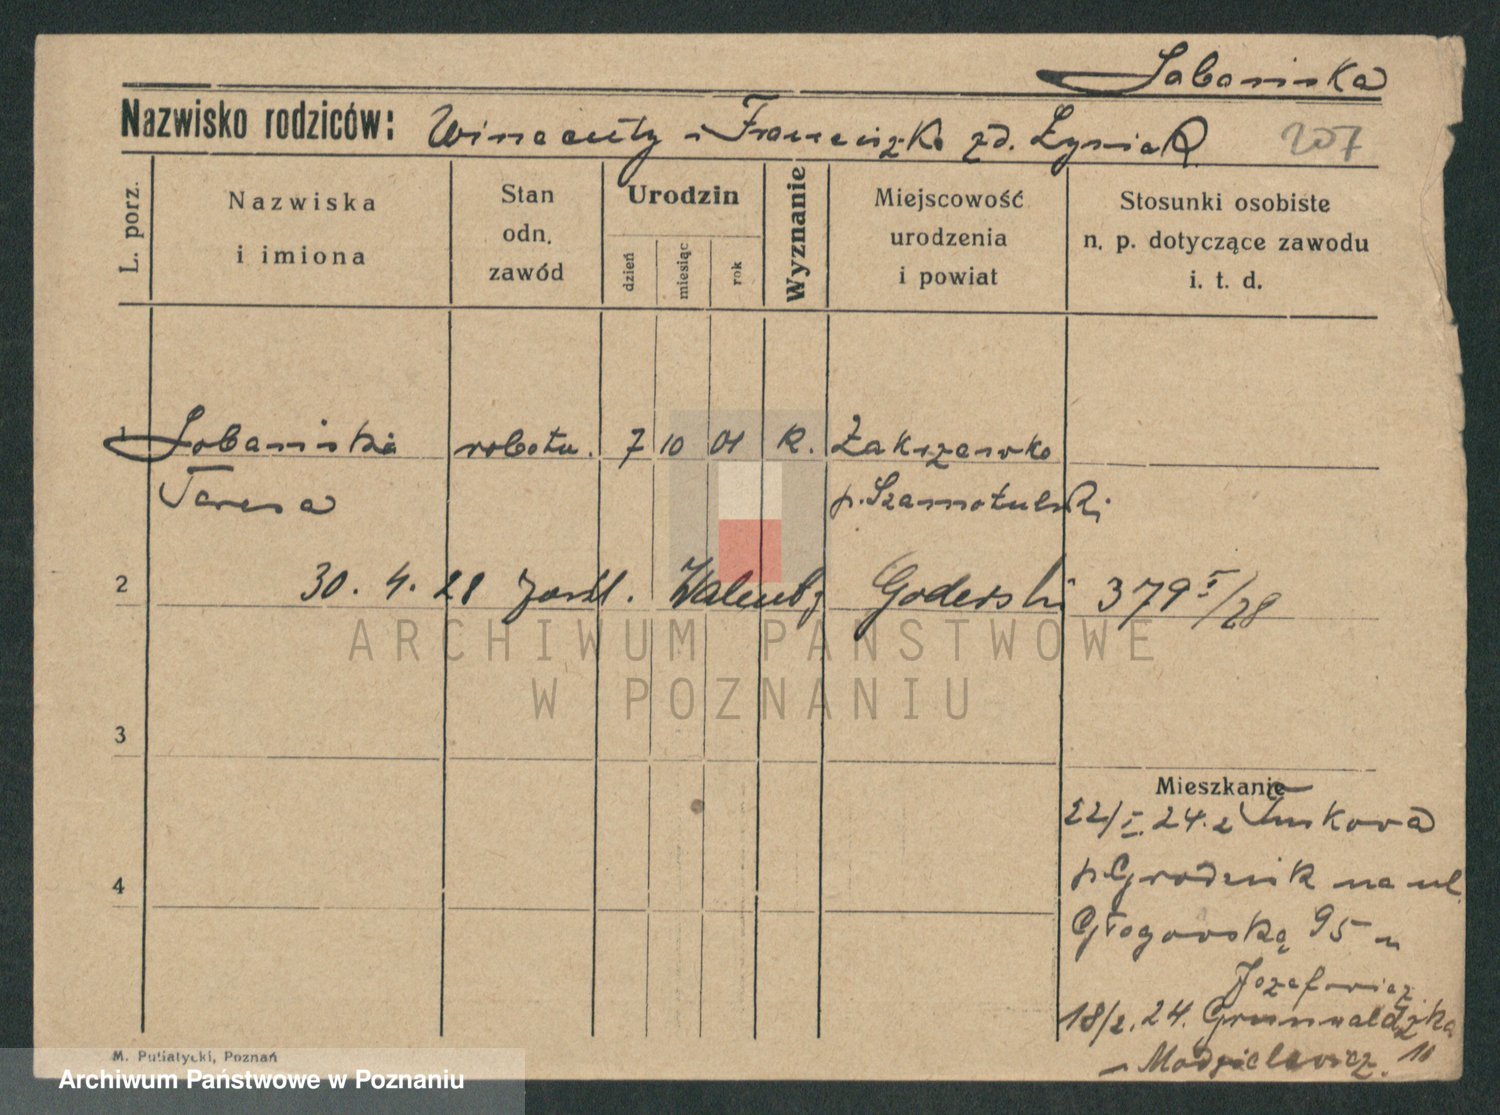 Sobasinska
Nazwisko rodziców: Wincenty i Franciszka zd. Łyniak 207
L. porz.
Nazwiska i imiona
Stan odn. zawód
Urodzin
dzień
miesiąc
rok
Wyznanie
Miejscowość urodzenia i powiat
Stosunki osobiste n. p. dotyczące zawodu i. t. d.
1 robotn. 7 10 01 R. Zakrzewko
Teresa p. Szamotulski
2 30. 4. 28 zaśl. Walenty Goderski 379 I/28
ARCHIWUM PAŃSTWOWE
W POZNANIU
3
Mieszkanie
22/I. 24. z
p. Grodzisk na ul.
4
Głogowską 95 u
Józefowicz
18/2. 24. Grunwaldzka
10
M. Putiatycki, Poznań
Archiwum Państwowe w Poznaniu